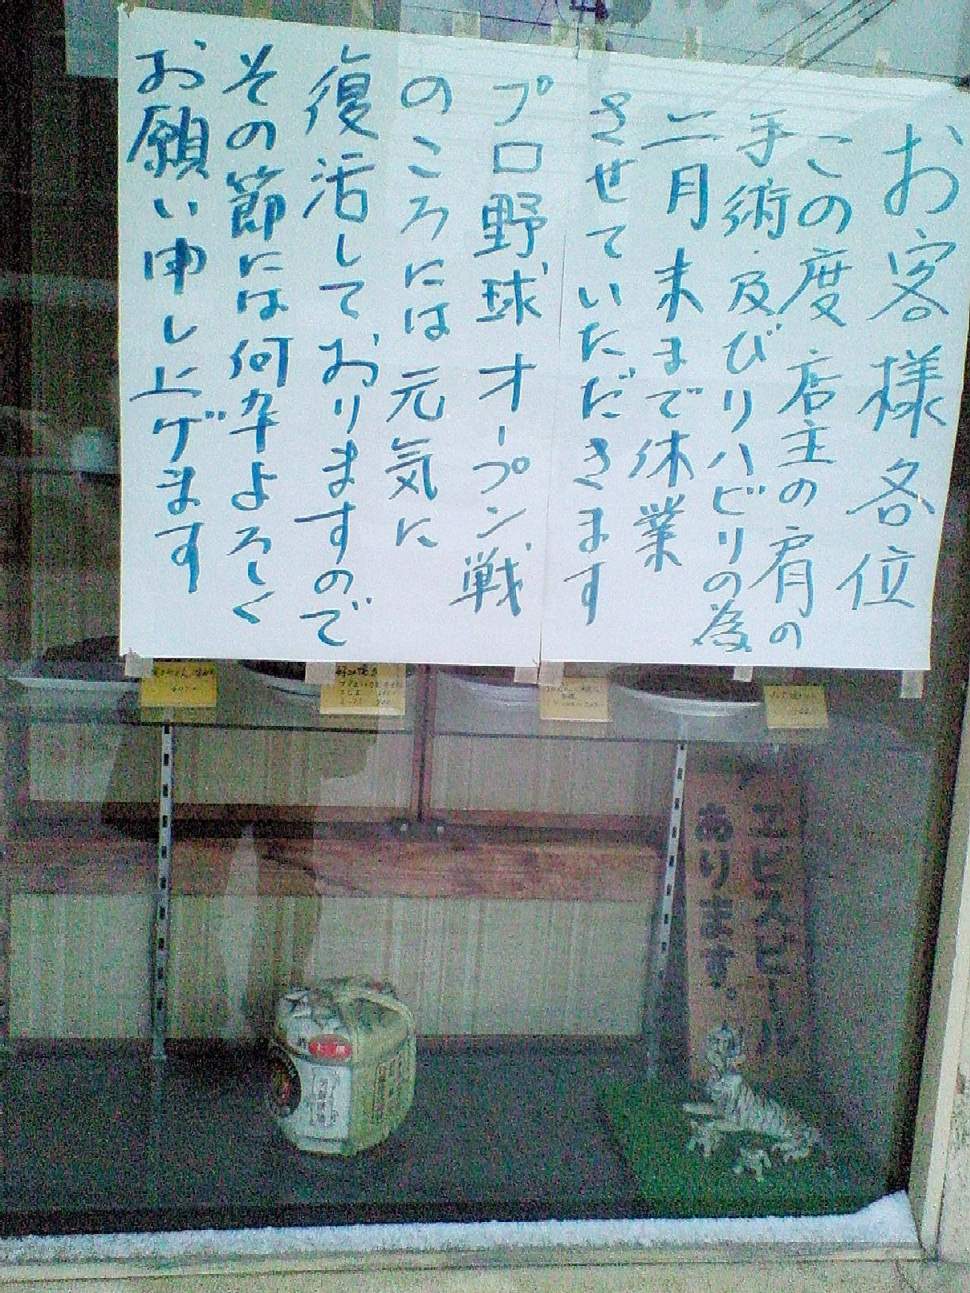 お客様各位
この度店主の肩の
手術及びリハビリの為
二月末まで休業
させていただきます
プロ野球オープン戦
のころには元気に
復活しておりますので
その節には何卒よろしく
お願い申し上げます
エビスビール
あります。